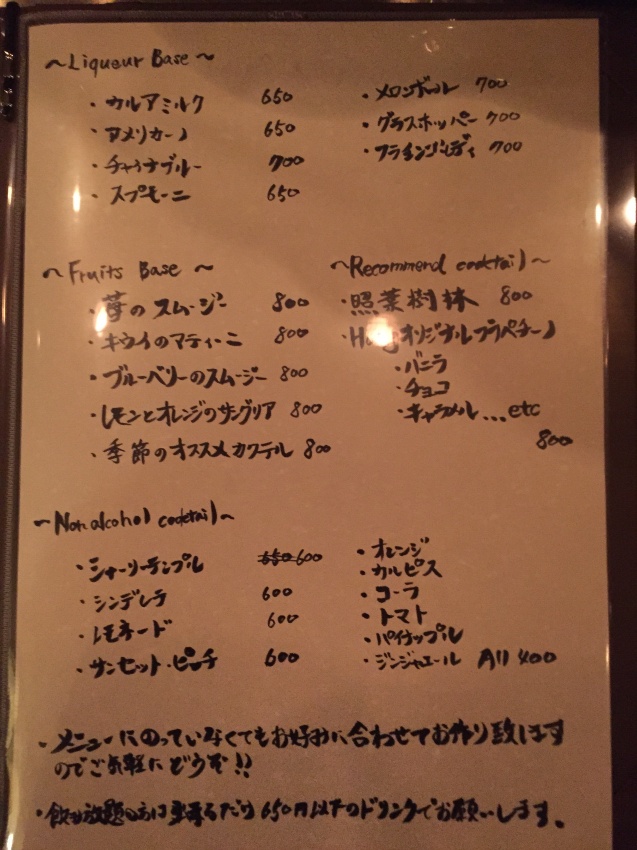 ~Liqueur Base~
・カルアミルク 650
・アメリカーノ 650
・チャイナブルー 700
・スプモーニ 650
・メロンボール 700
・グラスホッパー 700
・フライングレディ 700
~Fruits Base~
・苺のスムージー 800
・キウイのマティーニ 800
・ブルーベリーのスムージー 800
・レモンとオレンジのサングリア 800
・季節のオススメカクテル 800
~Recommend cocktail~
・照葉樹林 800
オリジナルフラペチーノ
・バニラ
・チョコ
・キャラメル...etc
800
~Non alcohol cocktail~
・シャーリーテンプル 650 600
・シンデレラ 600
・レモネード 600
・サンセット・ピーチ 600
・オレンジ
・カルピス
・コーラ
・トマト
・パイナップル
・ジンジャエール All 400
・メニューにのっていなくてもお好みに合わせてお作り致します
のでご気軽にどうぞ!!
・飲み放題の方は なるだけ650円以下のドリンクでお願いします。